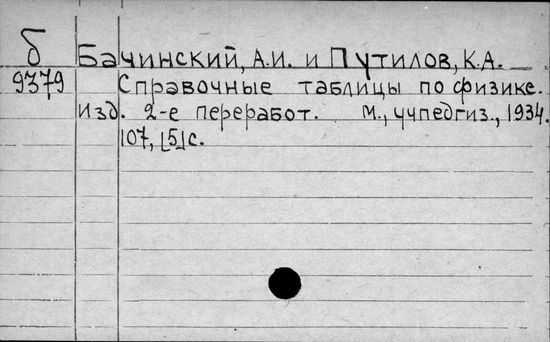 б
9379
Бачинский, А.И. и Путилов, К.А.
Справочные таблицы по физике.
Изд. 2-е переработ. М., учпедгиз., 1934.
107, [5] с.